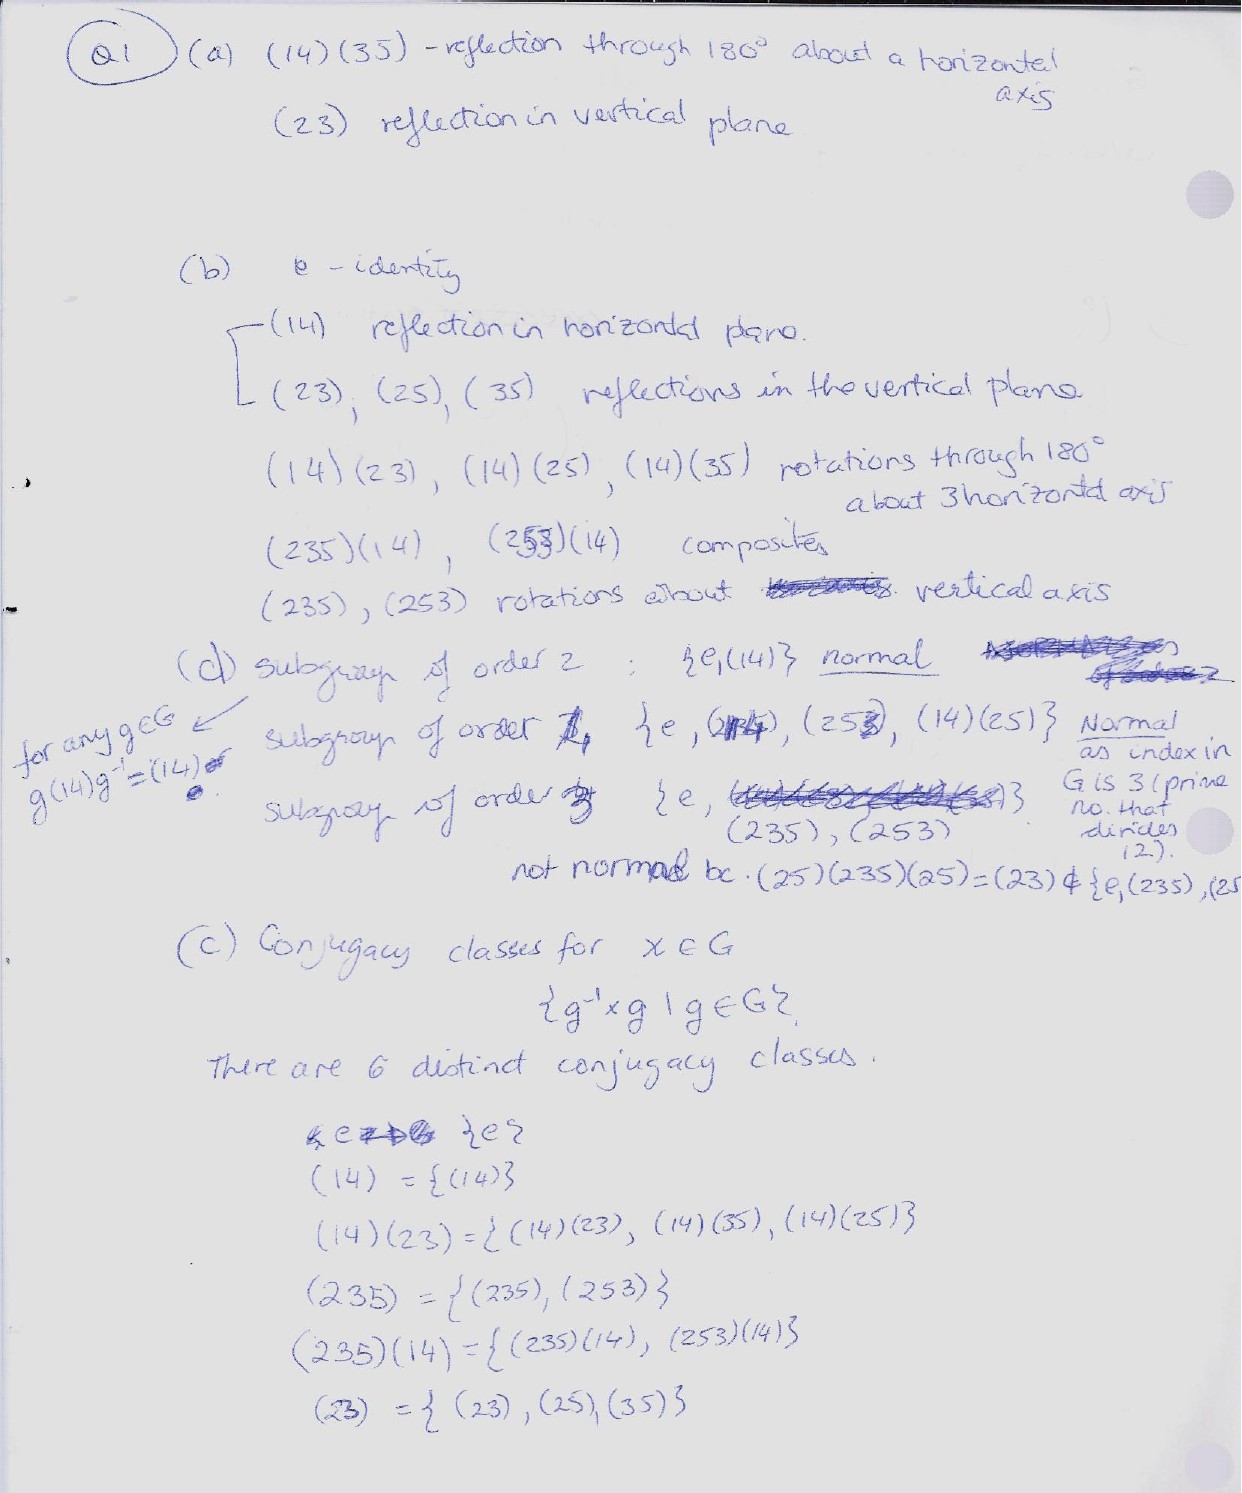 Q1 (a) (14)(35) - reflection through 180° about a horizontal
axis
(23) reflection in vertical plane
(b) e - identity
(14) reflection in horizontal plane.
(23), (25), (35) reflections in the vertical plane
(14)(23), (14)(25), (14)(35) rotations through 180°
about 3 horizontal axis
(235)(14), (253)(14) composites
(235), (253) rotations about vertical axis
(d) subgroup of order 2 : {e,(14)} normal
for any g∈G
g(14)g⁻¹=(14)
subgroup of order 4 {e, (14), (25), (14)(25)} Normal
as index in
G is 3 (prime
no. that
divides
12).
subgroup of order 3 {e, }
(235), (253)
not normal bc. (25)(235)(25)=(23)∉{e,(235),(25
(c) Conjugacy classes for x∈G
{g⁻¹xg | g∈G}
There are 6 distinct conjugacy classes.
{e}
(14) = {(14)}
(14)(23)={(14)(23), (14)(35), (14)(25)}
(235) = {(235), (253)}
(235)(14)={(235)(14), (253)(14)}
(23) = {(23), (25), (35)}